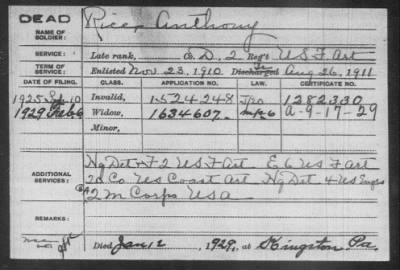 DEAD
NAME OF SOLDIER: Ricci Anthony
SERVICE: Late rank, Co. D. 2 Reg't U S F Art
TERM OF SERVICE: Enlisted Nov. 23, 1910 Discharged Aug 26, 1911
DATE OF FILING. CLASS. APPLICATION NO. LAW. CERTIFICATE NO.
1925 Sep 10 Invalid, 1524248 1282330
1929 Feb 6 Widow, 1634607. A-9-17-29
Minor,
ADDITIONAL SERVICES: Hq Det + F 2 US F Art E 6 US F Art
20 Co US Coast Art Hq Det 4 US Engrs
2 M Corps USA
REMARKS:
Died Jan 12, 1929, at Kingston Pa.